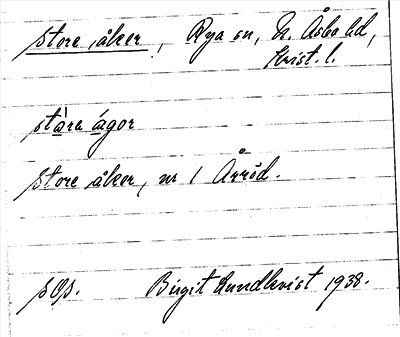 store åker, Rya sn, N. Åsbo hd,
Krist. l.
stàra ágor
store åker, nr 1 Årröd.
Birgit Lundkvist 1938.